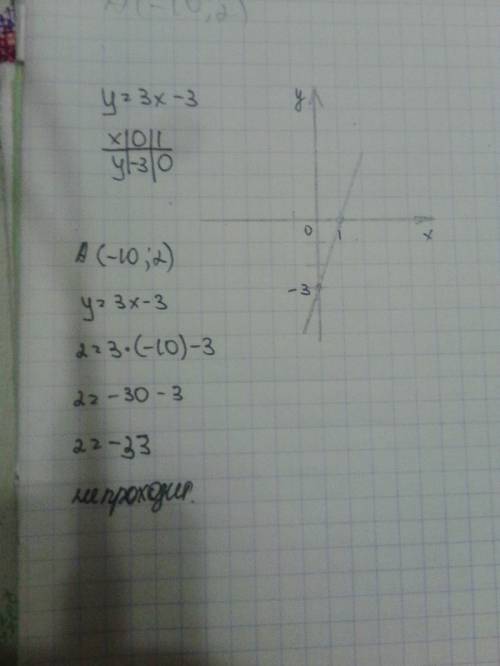 A(-10;2)
y = 3x - 3
x|0|1
y|-3|0
A (-10; 2)
y = 3x - 3
2 = 3 · (-10) - 3
2 = -30 - 3
2 = -33
не проходит.
y
0 1 x
-3